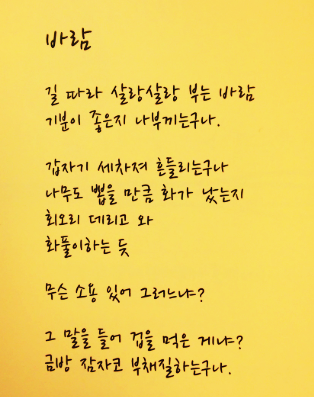 바람
길 따라 살랑살랑 부는 바람
기분이 좋은지 나부끼는구나.
갑자기 세차져 흔들리는구나
나무도 뽑을 만큼 화가 났는지
회오리 데리고 와
화풀이하는 듯
무슨 소용 있어 그러느냐?
그 말을 들어 겁을 먹은 게냐?
금방 잠자코 부채질하는구나.